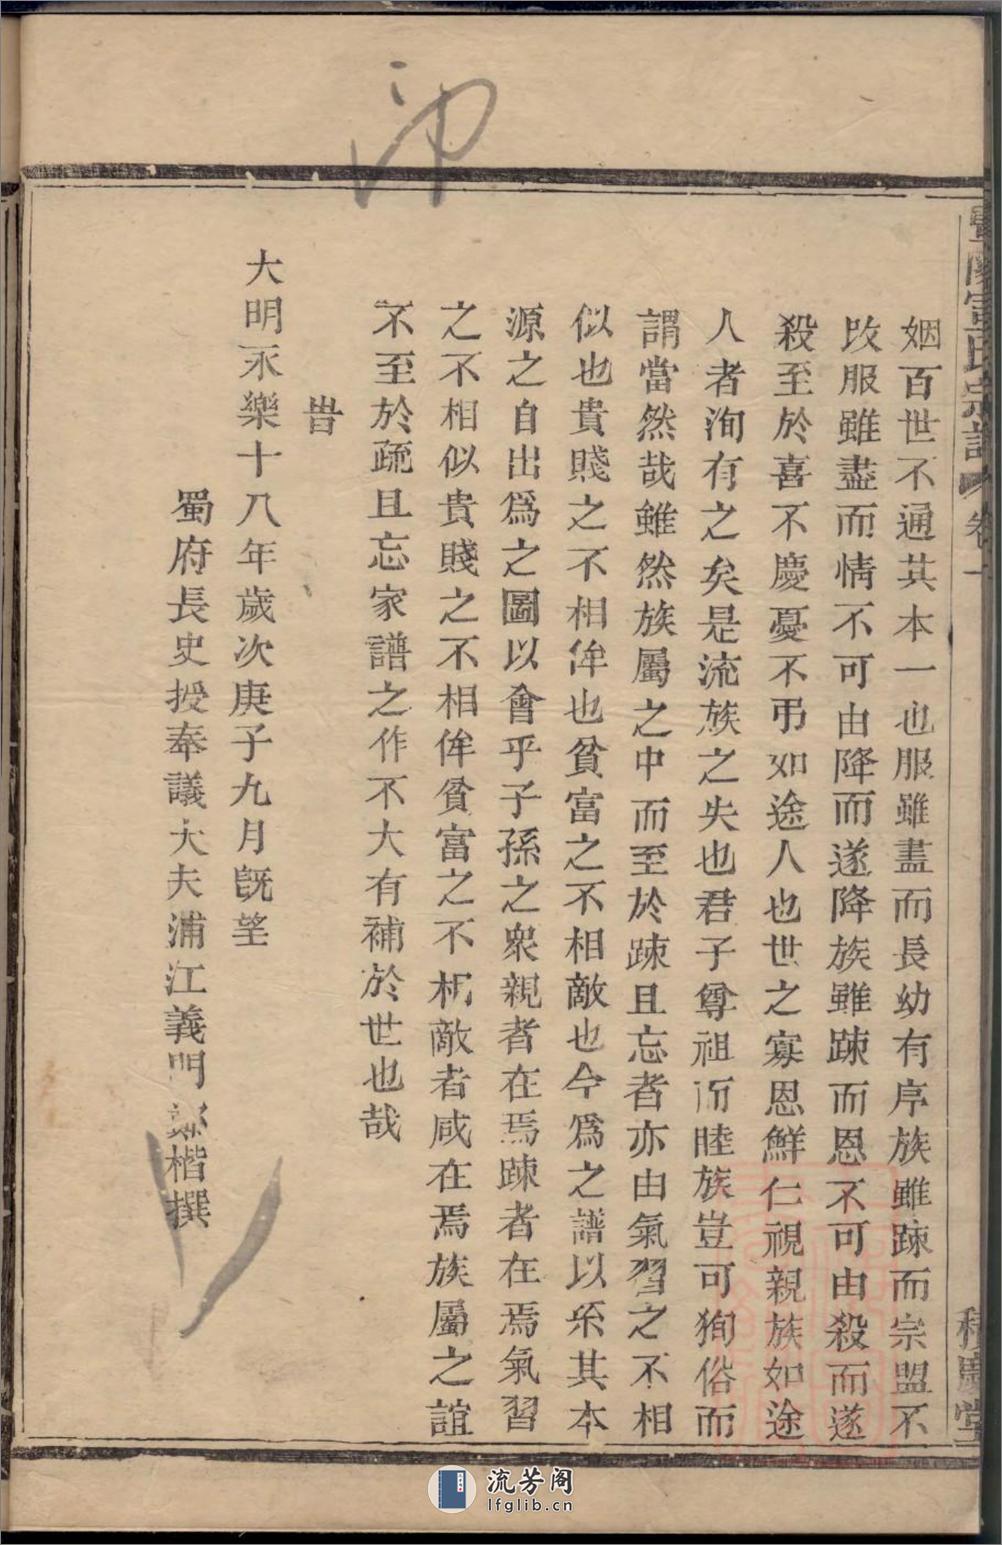 宗譜 卷一
姻百世不通其本一也服雖盡而長幼有序族雖踈而宗盟不
改服雖盡而情不可由降而遂降族雖踈而恩不可由殺而遂
殺至於喜不慶憂不弔如途人也世之寡恩鮮仁視親族如途
人者洵有之矣是流族之失也君子尊祖而睦族豈可狥俗而
謂當然哉雖然族屬之中而至於踈且忘者亦由氣習之不相
似也貴賤之不相侔也貧富之不相敵也今爲之譜以系其本
源之自出爲之圖以會乎子孫之衆親者在焉踈者在焉氣習
之不相似貴賤之不相侔貧富之不相敵者咸在焉族屬之誼
不至於疏且忘家譜之作不大有補於世也哉
旹
大明永樂十八年歲次庚子九月旣望
蜀府長史授奉議大夫浦江義門鄭楷撰
積慶堂
印
流芳阁
lfglib.cn